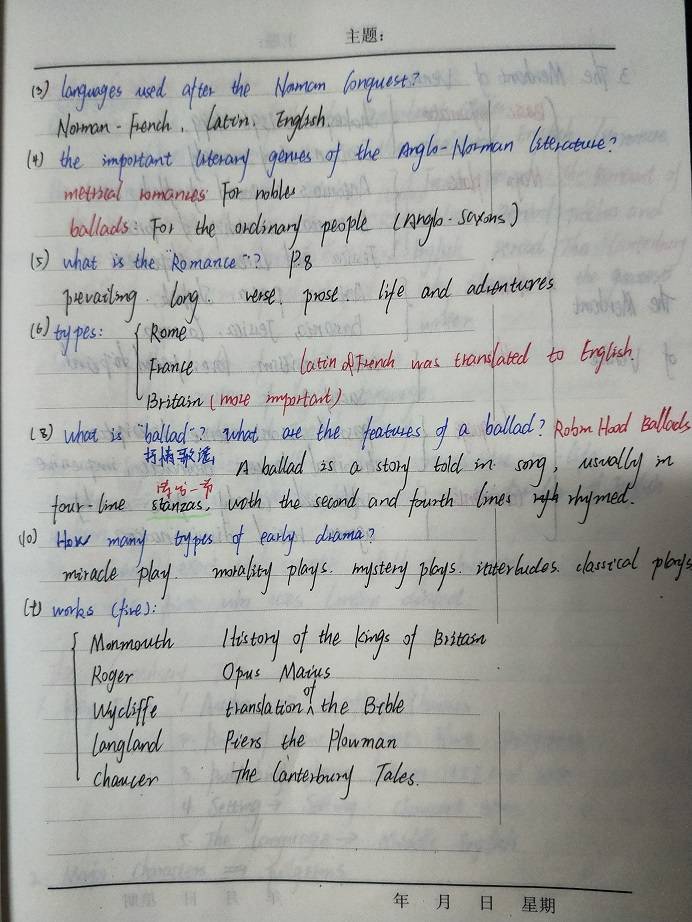 主题:
(3) languages used after the Norman Conquest?
Norman-French, Latin, English.
(4) the important literary genres of the Anglo-Norman literature?
metrical romances: For nobles
ballads: For the ordinary people (Anglo-Saxons)
(5) what is the "Romance"? P.8
prevailing. long. verse, prose. life and adventures
(6) types: Rome
France Latin of French was translated to English.
Britain (more important)
(8) what is "ballad"? what are the features of a ballad? Robin Hood Ballads
抒情歌谣 A ballad is a story told in song, usually in
四行一节
four-line stanzas, with the second and fourth lines rhymed.
(10) How many types of early drama?
miracle play. morality plays. mystery plays. interludes. classical plays
works (five):
Monmouth History of the Kings of Britain
Roger Opus Maius
Wycliffe translation of the Bible
Langland Piers the Plowman
Chaucer The Canterbury Tales.
年 月 日 星期